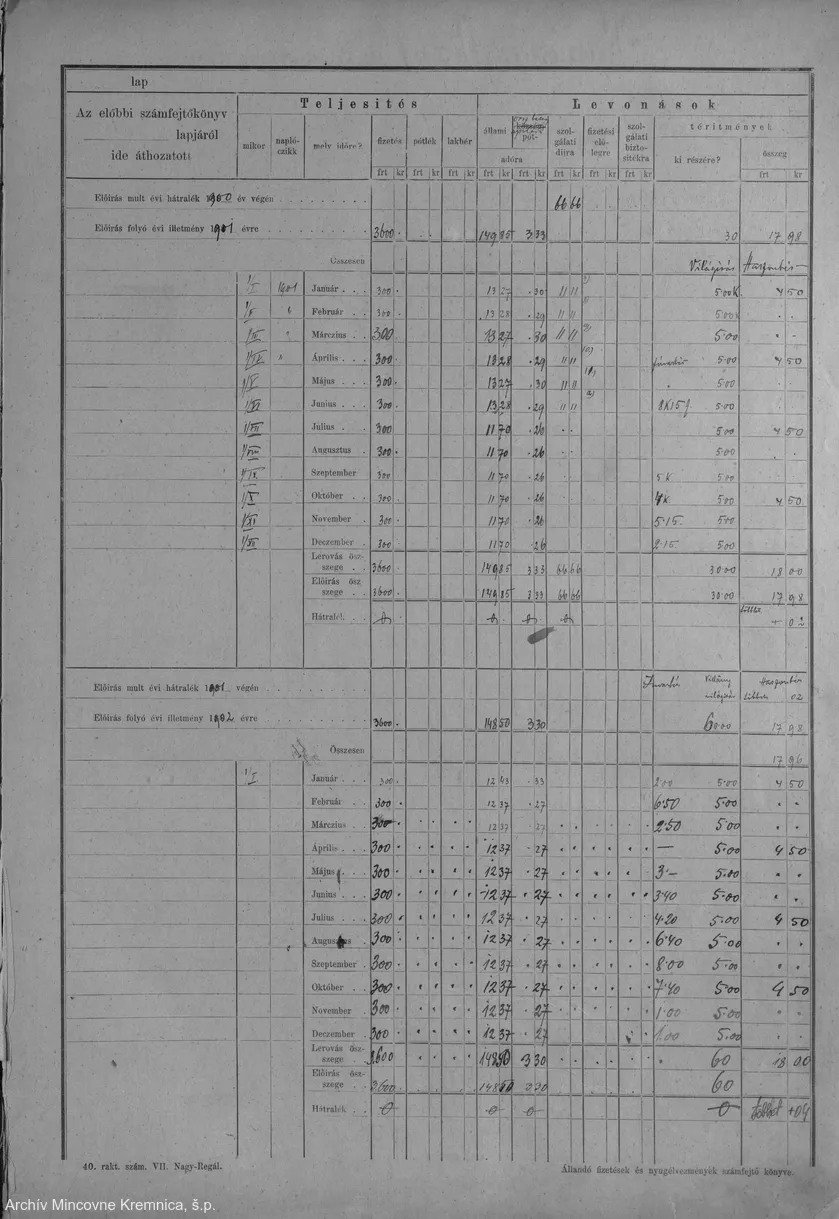 lap
Az előbbi számfejtőkönyv
lapjáról
ide áthozatott
Teljesítés
Levonások
mikor
napló-
czikk
mely időre?
fizetés
pótlék
lakbér
állami
pót-
adóra
szol-
gálati
díjra
fizetési
elő-
legre
szol-
gálati
bizto-
sítékra
térítmények
ki részére?
összeg
frt kr frt kr frt kr frt kr frt kr frt kr frt kr frt kr frt kr
Előirás mult évi hátralék 1900 év végén 66 66
Előirás folyó évi illetmény 1901 évre 3600 149 85 3 33 30 17 98
Összesen
Világítás Haszonbér
1/I 1901 Január 300 13 27 30 11 11 500K 4 50
1/II Február 300 13 28 29 11 11 500K
1/III Márczius 300 13 27 30 11 11 5·00
1/IV Április 300 13 28 29 11 11 5·00 4 50
1/V Május 300 13 27 30 11 11 500
1/VI Junius 300 13 28 29 11 11 8K15f 5·00
1/VII Julius 300 11 70 26 500 4 50
1/VIII Augusztus 300 11 70 26 5·00
1/IX Szeptember 300 11 70 26 5K 500
1/X Október 300 11 70 26 4K 500 4 50
1/XI November 300 11 70 26 5·15 500
1/XII Deczember 300 11 70 26 2·15 500
Lerovás ösz-
szege 3600 149 85 3 33 66 66 30·00 18 00
Előirás ösz-
szege 3600 149 85 3 33 66 66 30·00 17 98
Hátralék 0 0 0 0 + 02
Előirás mult évi hátralék 1901 végén Haszonbér 02
Előirás folyó évi illetmény 1902 évre 3600 148 50 3 30 60·00 17 98
Összesen 17 96
1/I Január 300 12 43 33 2·00 5·00 4 50
Február 300 12 37 27 6·50 5·00
Márczius 300 12 37 27 2·50 5·00
Április 300 12 37 27 — 5·00 4 50
Május 300 12 37 27 3·— 5·00
Junius 300 12 37 27 3·40 5·00
Julius 300 12 37 27 4·20 5·00 4 50
Augusztus 300 12 37 27 6·40 5·00
Szeptember 300 12 37 27 8·00 5·00
Október 300 12 37 27 7·40 5·00 4 50
November 300 12 37 27 1·00 5·00
Deczember 300 12 37 27 1·00 5·00
Lerovás ösz-
szege 3600 148 50 3 30 60 18 00
Előirás ösz-
szege 3600 148 50 3 30 60
Hátralék 0 0 0 0 többlet +04
40. rakt. szám. VII. Nagy-Regál.
Állandó fizetések és nyugélvezmények számfejtő könyve.
Archív Mincovne Kremnica, š.p.